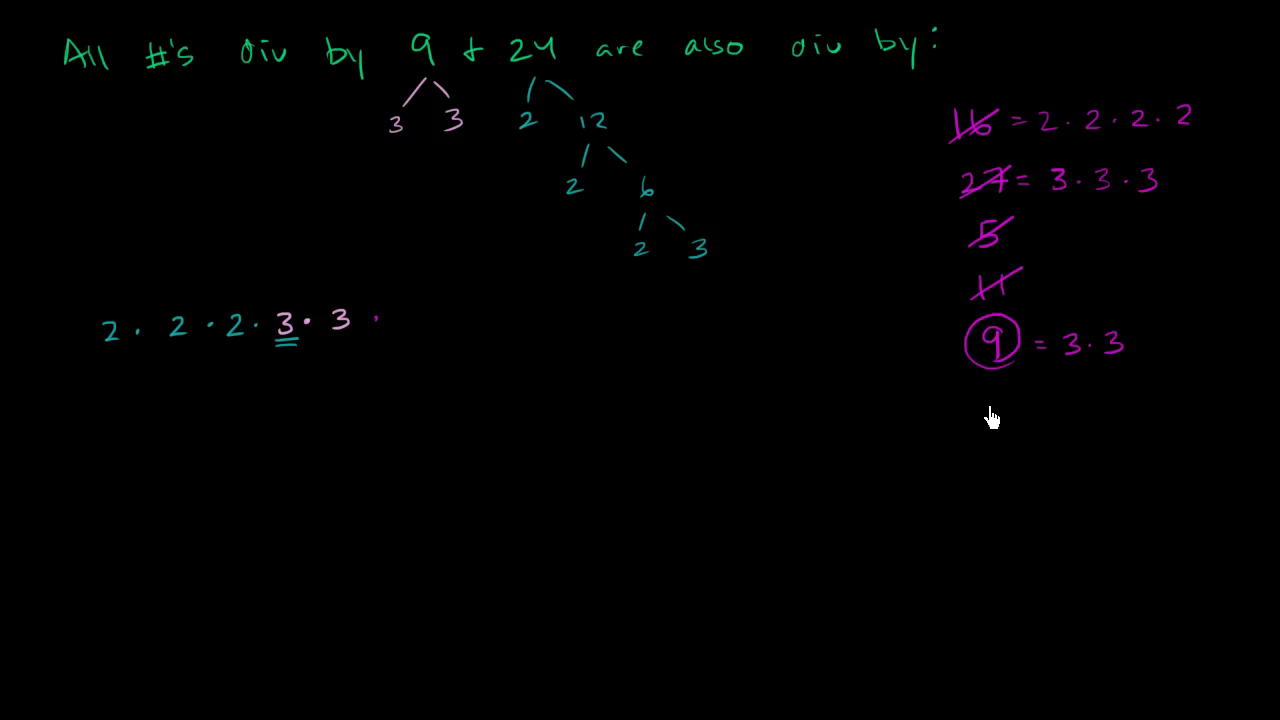 All #'s div by 9 + 24 are also div by:
3 3 2 12
2 6
2 3
2 · 2 · 2 · 3 · 3 ·
16 = 2 · 2 · 2 · 2
27 = 3 · 3 · 3
5
11
9 = 3 · 3